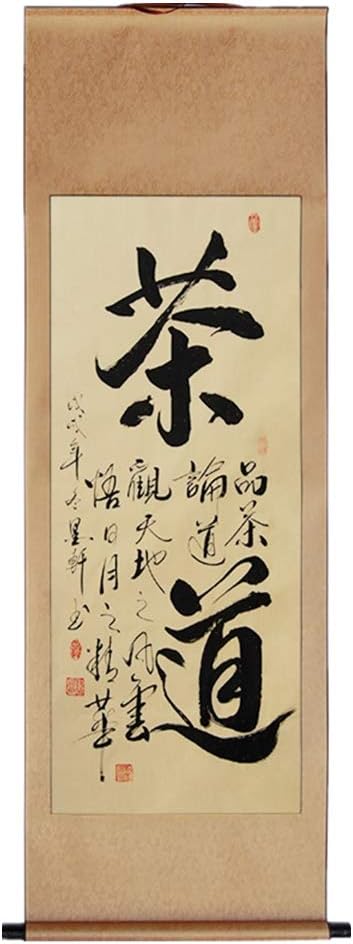 茶道
品茶
論道
觀天地之風雲
悟日月之精華
戊戌年冬墨軒書